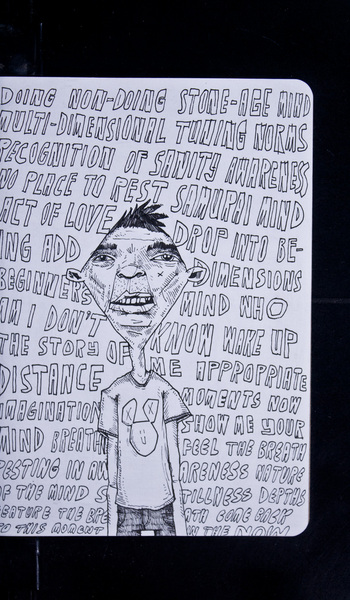 DOING NON-DOING STONE-AGE MIND
MULTI-DIMENSIONAL TUNING NORMS
RECOGNITION OF SANITY AWARENESS
NO PLACE TO REST SAMURAI MIND
ACT OF LOVE DROP INTO BE-
ING ADD DIMENSIONS
BEGINNERS MIND WHO
AM I DON'T KNOW WAKE UP
THE STORY OF ME APPROPRIATE
DISTANCE MOMENTS NOW
IMAGINATION SHOW ME YOUR
MIND BREATH FEEL THE BREATH
RESTING IN AW ARENESS NATURE
OF THE MIND STILLNESS DEPTHS
FEATURE THE BRE ATH COME BACK
TO THIS MOMENT IN THE NOW